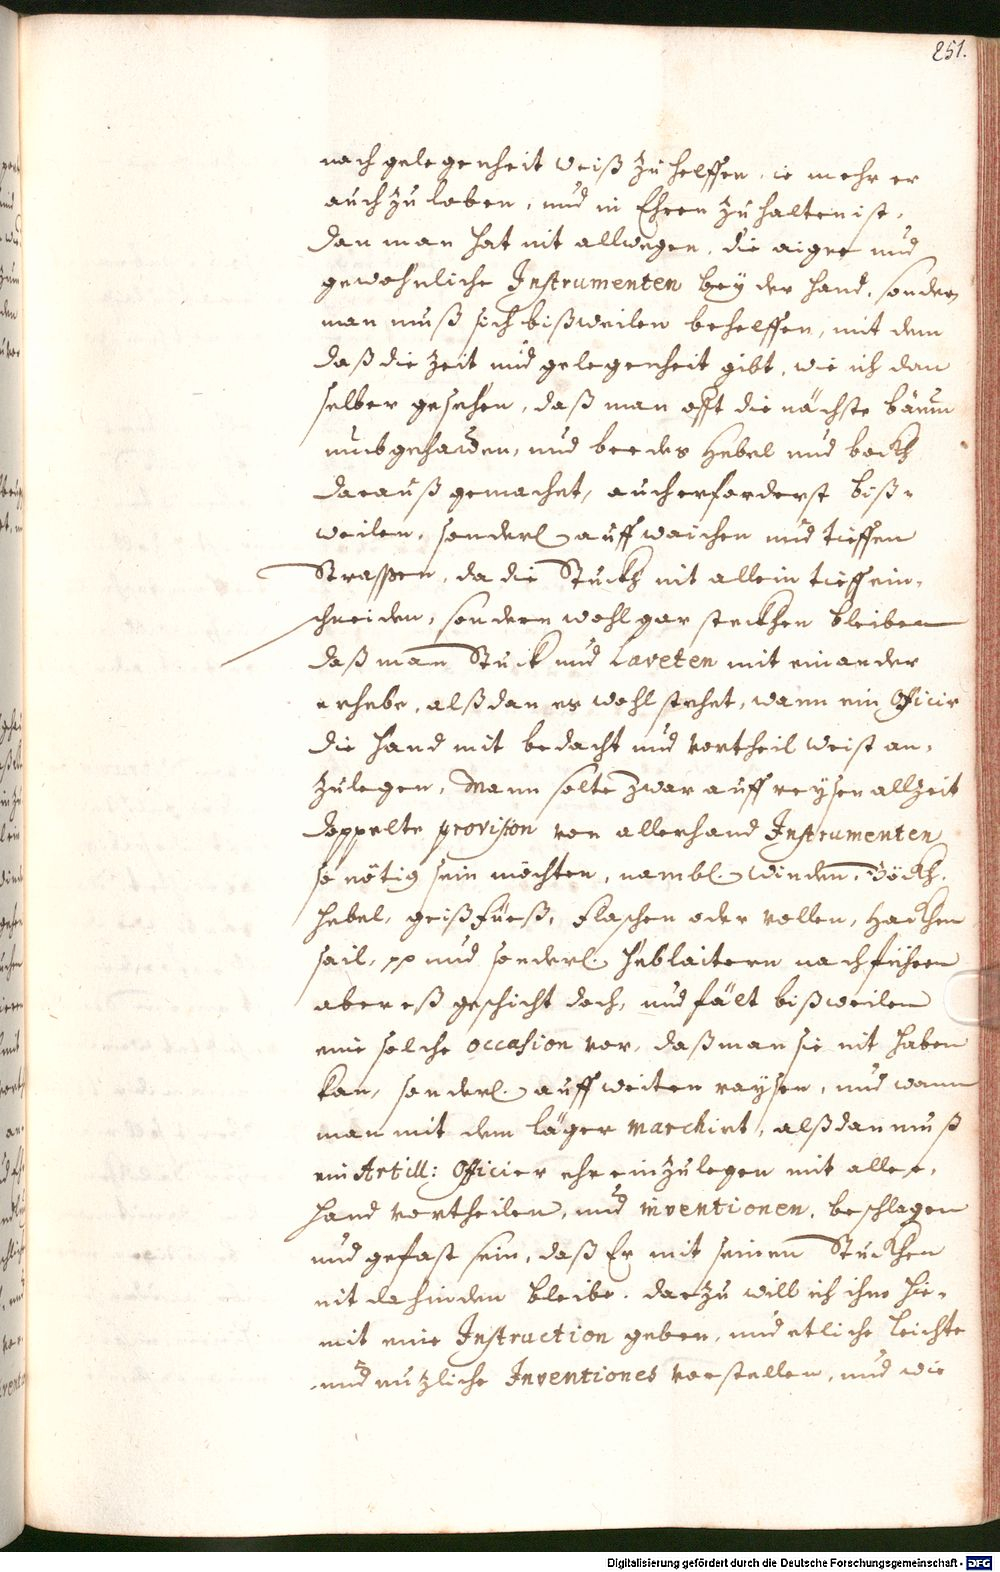 251.
nach gelegenheit weiß zu helffen, ie mehr er
auch zu loben, und in Ehren zu halten ist,
dan man hat nit allwegen, die aigne und
gewohnliche Instrumenten bey der hand, sondern
man muß sich bißweilen behelffen, mit dem
daß die zeit und gelegenheit gibt, wie ich dan
selber gesehen, daß man offt die nächste bäum
umbgehauen, und beedes Hebel und bockh
darauß gemachet, auch erforderst biß-
weilen, sonderl. auff waichen und tieffen
Strassen, da die Stuckh nit allein tieff ein-
schneiden, sondern wohl gar steckhen bleiben
daß man Stuck und Laveten mit einander
erhebe, alßdan es wohl stehet, wann ein Officir
die hand mit bedacht und vortheil weist an-
zulegen, Mann solte zwar auff reysen allzeit
doppelte provision von allerhand Instrumenten
so nötig sein möchten, nambl. winden, Böckh,
hebel, geißfüeß, Flaschen oder rollen, Hackhen
sail, pp und sonderl. Heblaitern nachführen
aber eß geschicht doch, und fält bißweilen
eine solche occasion vor, daß man sie nit haben
kan, sonderl. auff weiten raysen, und wann
man mit dem läger marchirt, alßdan muß
ein Artill: Officier ehr einzulegen mit aller-
hand vortheilen, und inventionen, beschlagen
und gefast sein, daß Er mit seinen Stuckhen
nit dahinden bleibe. darzu will ich ihm hie-
mit eine Instruction geben, und etliche leichte
und nutzliche Inventiones vorstellen, und wie
Digitalisierung gefördert durch die Deutsche Forschungsgemeinschaft - DFG